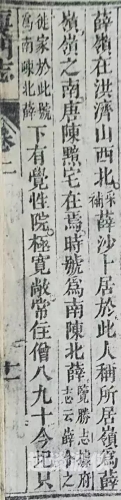 薛嶺在洪濟山西北采補薛沙十居於此人稱所居嶺爲薛
嶺嶺之南唐陳黯宅在焉時號爲南陳北薛覽勝志據府志云薛令之
徙家於此號爲南陳北薛下有覺性院極寬敞常住僧八九十今
門志 卷二